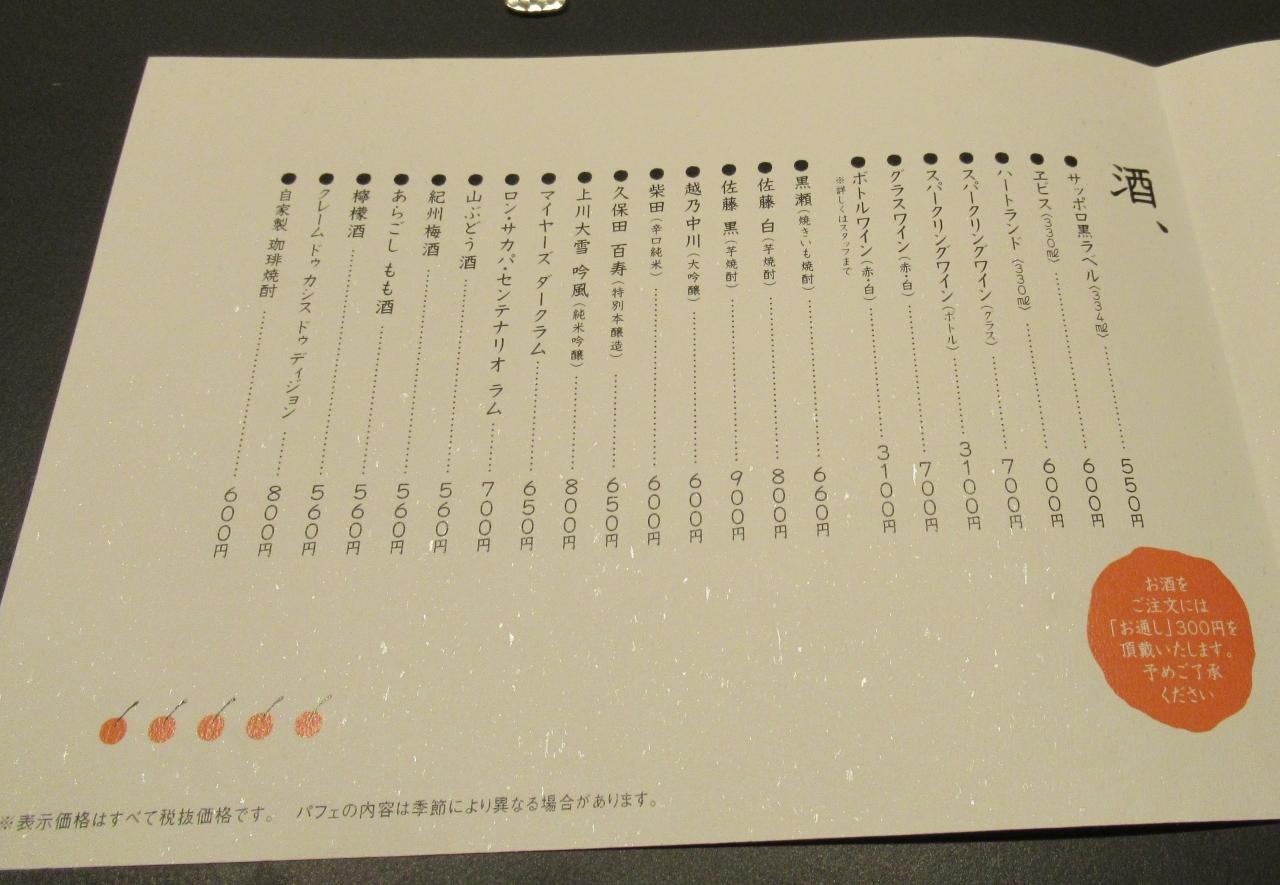 酒、
サッポロ黒ラベル（334㎖）……550円
ヱビス（330㎖）……600円
ハートランド（330㎖）……600円
スパークリングワイン（グラス）……700円
スパークリングワイン（ボトル）……3100円
グラスワイン（赤・白）……700円
ボトルワイン（赤・白）……3100円
※詳しくはスタッフまで
黒瀬（焼きいも焼酎）……660円
佐藤 白（芋焼酎）……800円
佐藤 黒（芋焼酎）……900円
越乃中川（大吟醸）……600円
柴田（辛口純米）……600円
久保田 百寿（特別本醸造）……650円
上川大雪 吟風（純米吟醸）……800円
マイヤーズ ダークラム……650円
ロン・サカパ・センテナリオ ラム……700円
山ぶどう酒……560円
紀州梅酒……560円
あらごし もも酒……560円
檸檬酒……560円
クレーム ドゥ カシス ドゥ ディジョン……800円
自家製 珈琲焼酎……600円
お酒を
ご注文には
「お通し」300円を
頂戴いたします。
予めご了承
ください
※表示価格はすべて税抜価格です。　パフェの内容は季節により異なる場合があります。